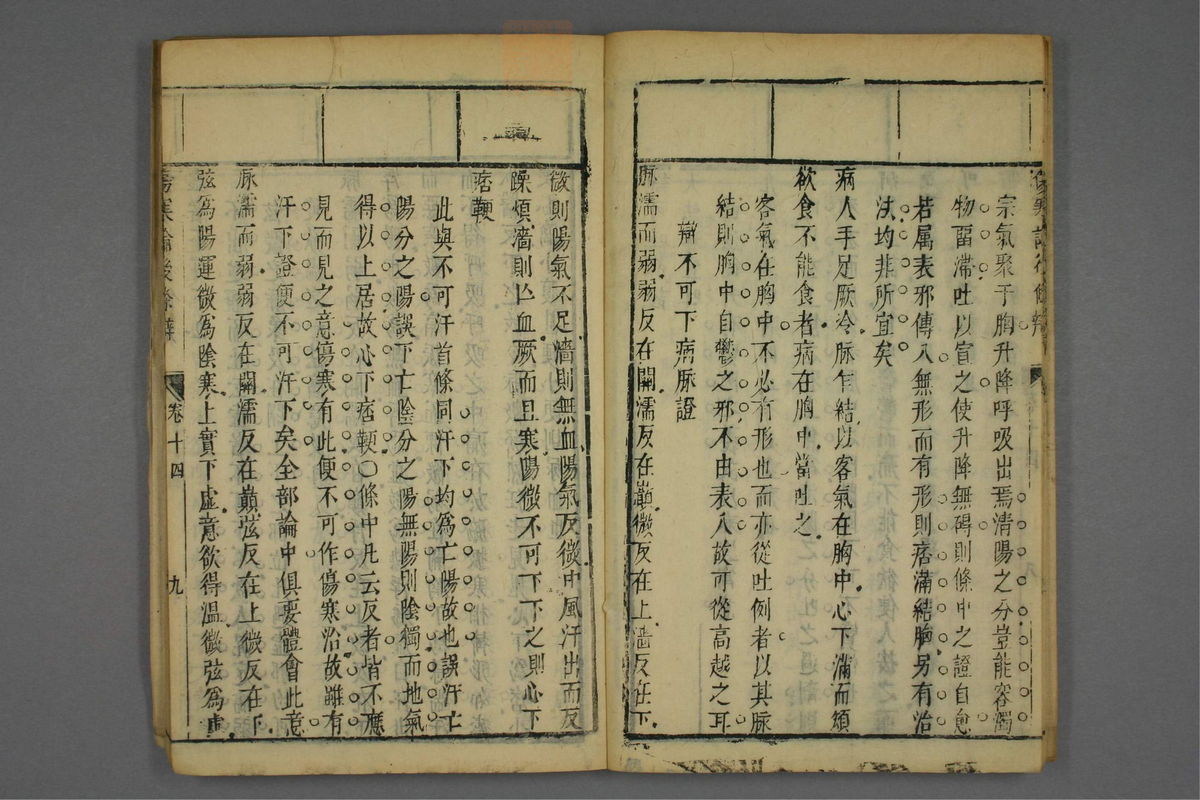 宗氣聚于胸升降呼吸出焉清陽之分豈能容濁
物留滯吐以宣之使升降無碍則條中之證自愈
若属表邪傳入無形而有形則痞滿結胸另有治
法均非所宜矣
病人手足厥冷脉乍結以客氣在胸中心下滿而煩
欲食不能食者病在胸中當吐之
客氣在胸中不必有形也而亦從吐例者以其脉
結則胸中自鬱之邪不由表入故可從高越之耳
辯不可下病脉證
脉濡而弱弱反在關濡反在巔微反在上濇反在下
微則陽氣不足濇則無血陽氣反微中風汗出而反
躁煩濇則亡血厥而且寒陽微不可下下之則心下
痞鞕
此與不可汗首條同汗下均爲亡陽故也誤汗亡
陽分之陽誤下亡陰分之陽無陽則陰獨而地氣
得以上居故心下痞鞕〇條中凡云反者皆不應
見而見之意傷寒有此便不可作傷寒治故雖有
汗下證便不可汗下矣全部論中俱要體會此意
脉濡而弱弱反在關濡反在巔弦反在上微反在下
弦爲陽運微爲陰寒上實下虛意欲得温微弦爲虛
卷十四
九